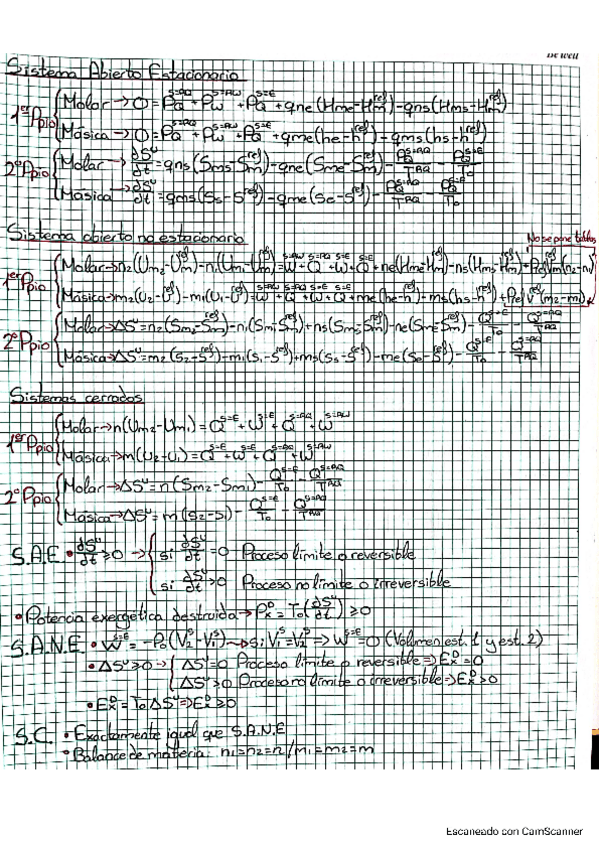 Be well
Sistema Abierto Estacionario
1er Ppio { Molar → 0 = PQ^{S=AQ} + PW^{S=AW} + PQ^{S=E} + qne(Hme-Hm^{ref}) - qns(Hms-Hm^{ref})
Másica → 0 = PQ + PW + PQ + qme(he-h^{ref}) - qms(hs-h^{ref})
2º Ppio { Molar → dS^u/dt = qns(Sms-Sm^{ref}) - qne(Sme-Sm^{ref}) - PQ^{S=AQ}/T^{AQ} - PQ^{S=E}/To
Másica → dS^u/dt = qms(Ss-S^{ref}) - qme(Se-S^{ref}) - PQ^{S=AQ}/T^{AQ} - PQ^{S=E}/To
Sistema abierto no estacionario No se pone tablas
1er Ppio { Molar → n2(Um2-Um^{ref}) - n1(Um1-Um^{ref}) = W^{S=AW} + Q^{S=AQ} + W^{S=E} + Q^{S=E} + ne(Hme-Hm^{ref}) - ns(Hms-Hm^{ref}) + P^{ref}Vm^{ref}(n2-n1)
Másica → m2(U2-U^{ref}) - m1(U1-U^{ref}) = W + Q + W + Q + me(he-h^{ref}) - ms(hs-h^{ref}) + P^{ref}V^{ref}(m2-m1)
2º Ppio { Molar → ΔS^u = n2(Sm2-Sm^{ref}) - n1(Sm1-Sm^{ref}) + ns(Sms-Sm^{ref}) - ne(Sme-Sm^{ref}) - Q^{S=E}/To - Q^{S=AQ}/T^{AQ}
Másica → ΔS^u = m2(S2-S^{ref}) - m1(S1-S^{ref}) + ms(Ss-S^{ref}) - me(Se-S^{ref}) - Q^{S=E}/To - Q^{S=AQ}/T^{AQ}
Sistemas cerrados
1er Ppio { Molar → n(Um2-Um1) = Q^{S=E} + W^{S=E} + Q^{S=AQ} + W^{S=AW}
Másica → m(U2-U1) = Q^{S=E} + W^{S=E} + Q^{S=AQ} + W^{S=AW}
2º Ppio { Molar → ΔS^u = n(Sm2-Sm1) - Q^{S=E}/To - Q^{S=AQ}/T^{AQ}
Másica → ΔS^u = m(S2-S1) - Q^{S=E}/To - Q^{S=AQ}/T^{AQ}
S.A.E • dS^u/dt ≥ 0 → { si dS^u/dt = 0 Proceso límite o reversible
si dS^u/dt > 0 Proceso no límite o irreversible
• Potencia exergética destruida → Px^D = To(dS^u/dt) ≥ 0
S.A.N.E • W^{S=E} = -Po(V2^S-V1^S) → si V1^S = V2^S ⇒ W^{S=E} = 0 (Volumen est. 1 y est. 2)
• ΔS^u ≥ 0 → { ΔS^u = 0 Proceso límite o reversible ⇒ Ex^D = 0
ΔS^u > 0 Proceso no límite o irreversible ⇒ Ex^D > 0
• Ex^D = To ΔS^u ⇒ Ex^D ≥ 0
S.C. • Exactamente igual que S.A.N.E
• Balance de materia: n1=n2=n / m1=m2=m
Escaneado con CamScanner